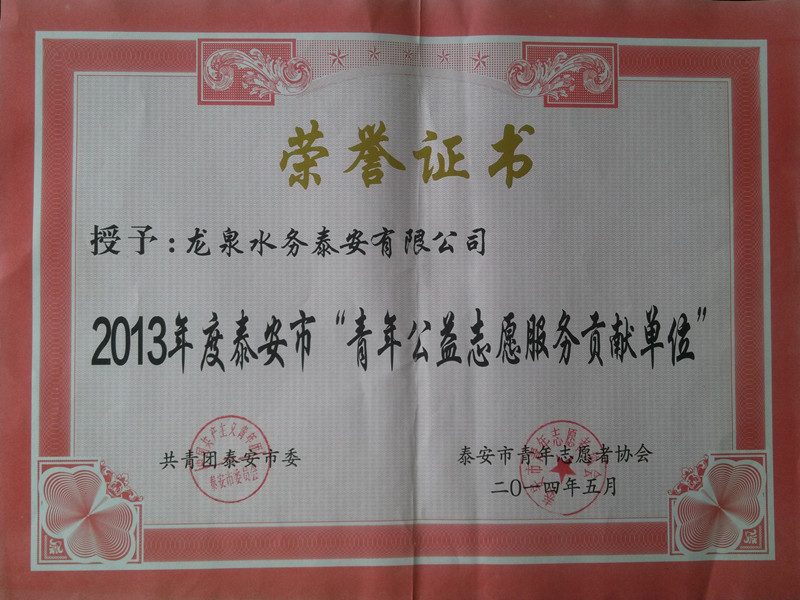 荣誉证书
授予：龙泉水务泰安有限公司
2013年度泰安市“青年公益志愿服务贡献单位”
共青团泰安市委
泰安市青年志愿者协会
二〇一四年五月
泰安市委员会